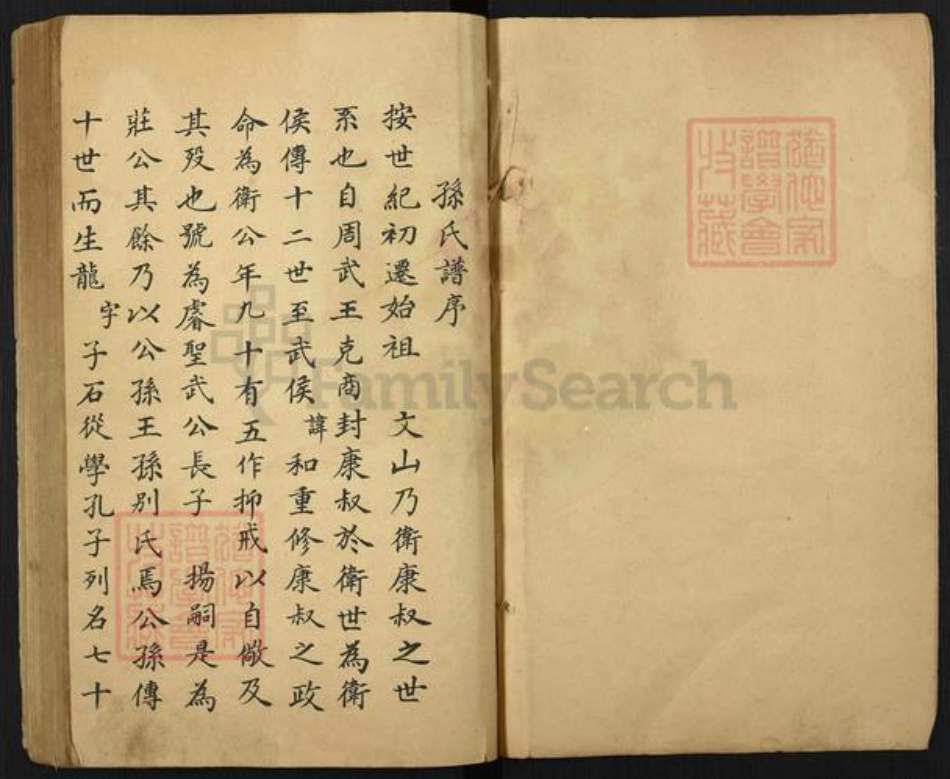 孫氏譜序
按世紀初遷始祖 文山乃衛康叔之世
系也自周武王克商封康叔於衛世為衛
侯傳十二世至武侯諱和重修康叔之政
命為衛公年九十有五作抑戒以自儆及
其歿也號為睿聖武公長子 揚嗣是為
莊公其餘乃以公孫王孫別氏焉公孫傳
十世而生龍字子石從學孔子列名七十
FamilySearch
譜學會
收藏